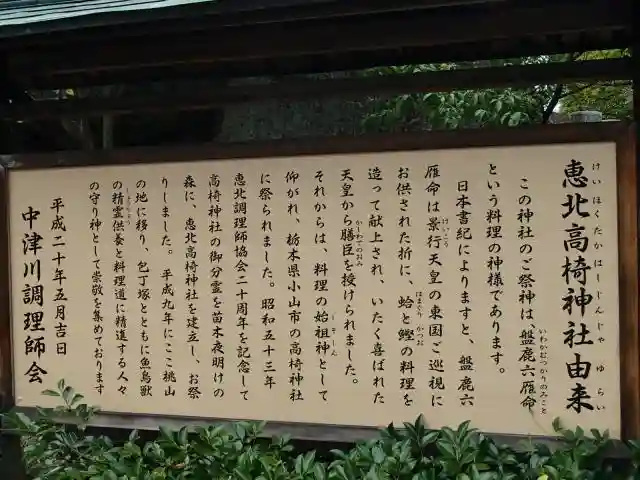 恵北高椅神社由来
けいほくたかはしじんじゃ ゆらい
この神社のご祭神は、盤鹿六雁命
いわかむつかりのみこと
という料理の神様であります。
日本書紀によりますと、盤鹿六
雁命は景行天皇の東国ご巡視に
けいこう
お供された折に、蛤と鰹の料理を
はまぐり かつお
造って献上され、いたく喜ばれた
天皇から膳臣を授けられました。
かしわでのおみ
それからは、料理の始祖神として
そしん
仰がれ、栃木県小山市の高椅神社
に祭られました。昭和五十三年
恵北調理師協会二十周年を記念して
高椅神社の御分霊を苗木夜明けの
森に、恵北高椅神社を建立し、お祭
りしました。平成九年にここ桃山
の地に移り、包丁塚とともに魚鳥獣
の精霊供養と料理道に精進する人々
しょうりょう
の守り神として崇敬を集めております
平成二十年五月吉日
中津川調理師会